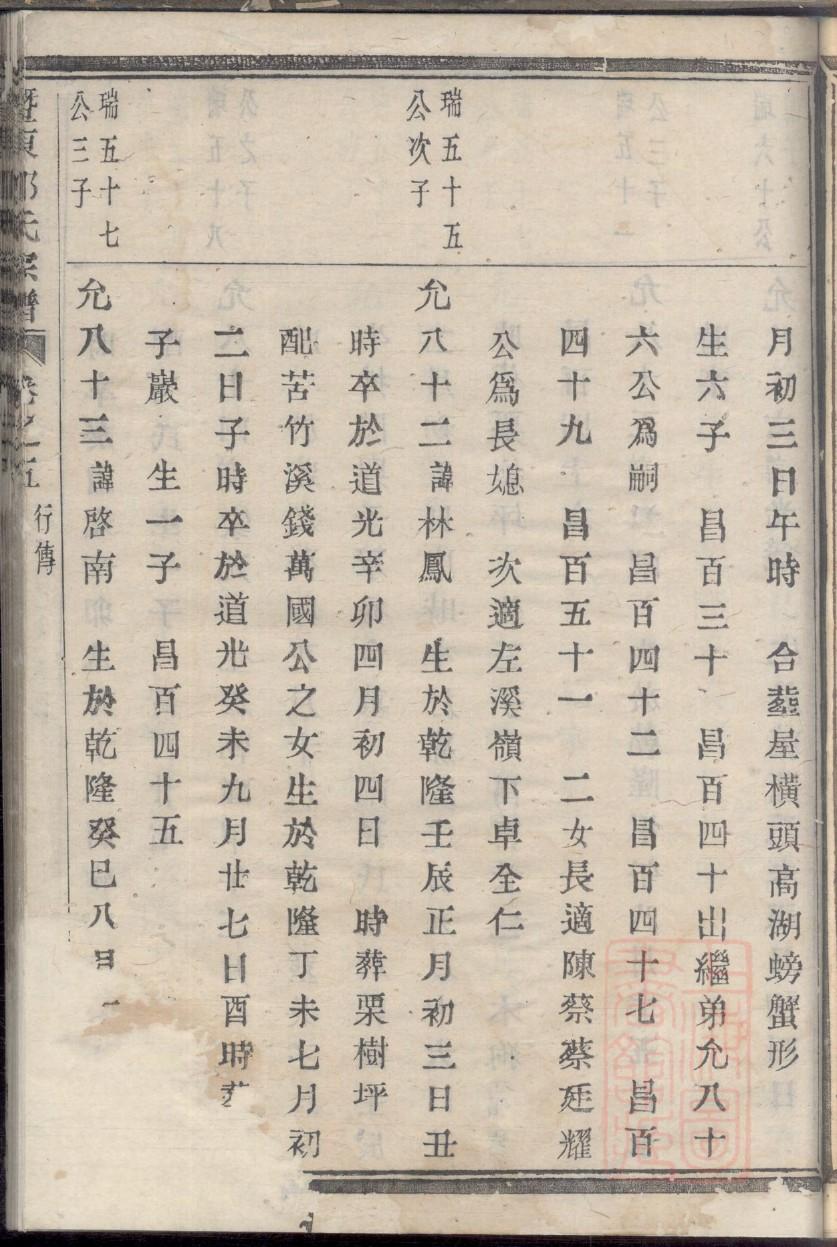 月初三日午時　合塟屋橫頭高湖螃蟹形
生六子　昌百三十　昌百四十出繼弟允八十
六公爲嗣　昌百四十二　昌百四十七　昌百
四十九　昌百五十一　二女長適陳蔡蔡廷耀
公爲長媳　次適左溪嶺下卓全仁
瑞五十五
公次子
允八十二諱林鳳　生於乾隆壬辰正月初三日丑
時卒於道光辛卯四月初四日　時葬栗樹坪
配苦竹溪錢萬國公之女生於乾隆丁未七月初
二日子時卒於道光癸未九月廿七日酉時
子巖　生一子　昌百四十五
瑞五十七
公三子
允八十三諱啓南　生於乾隆癸巳八
氏宗譜　卷之五　行傳